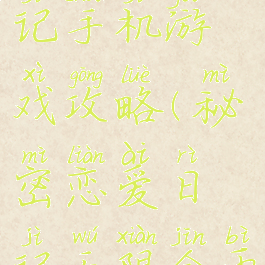 记手机游
xì gōng lüè mì
戏攻略(秘
mì liàn ài rì
密恋爱日
jì wú xiàn jīn bì
记无限金币